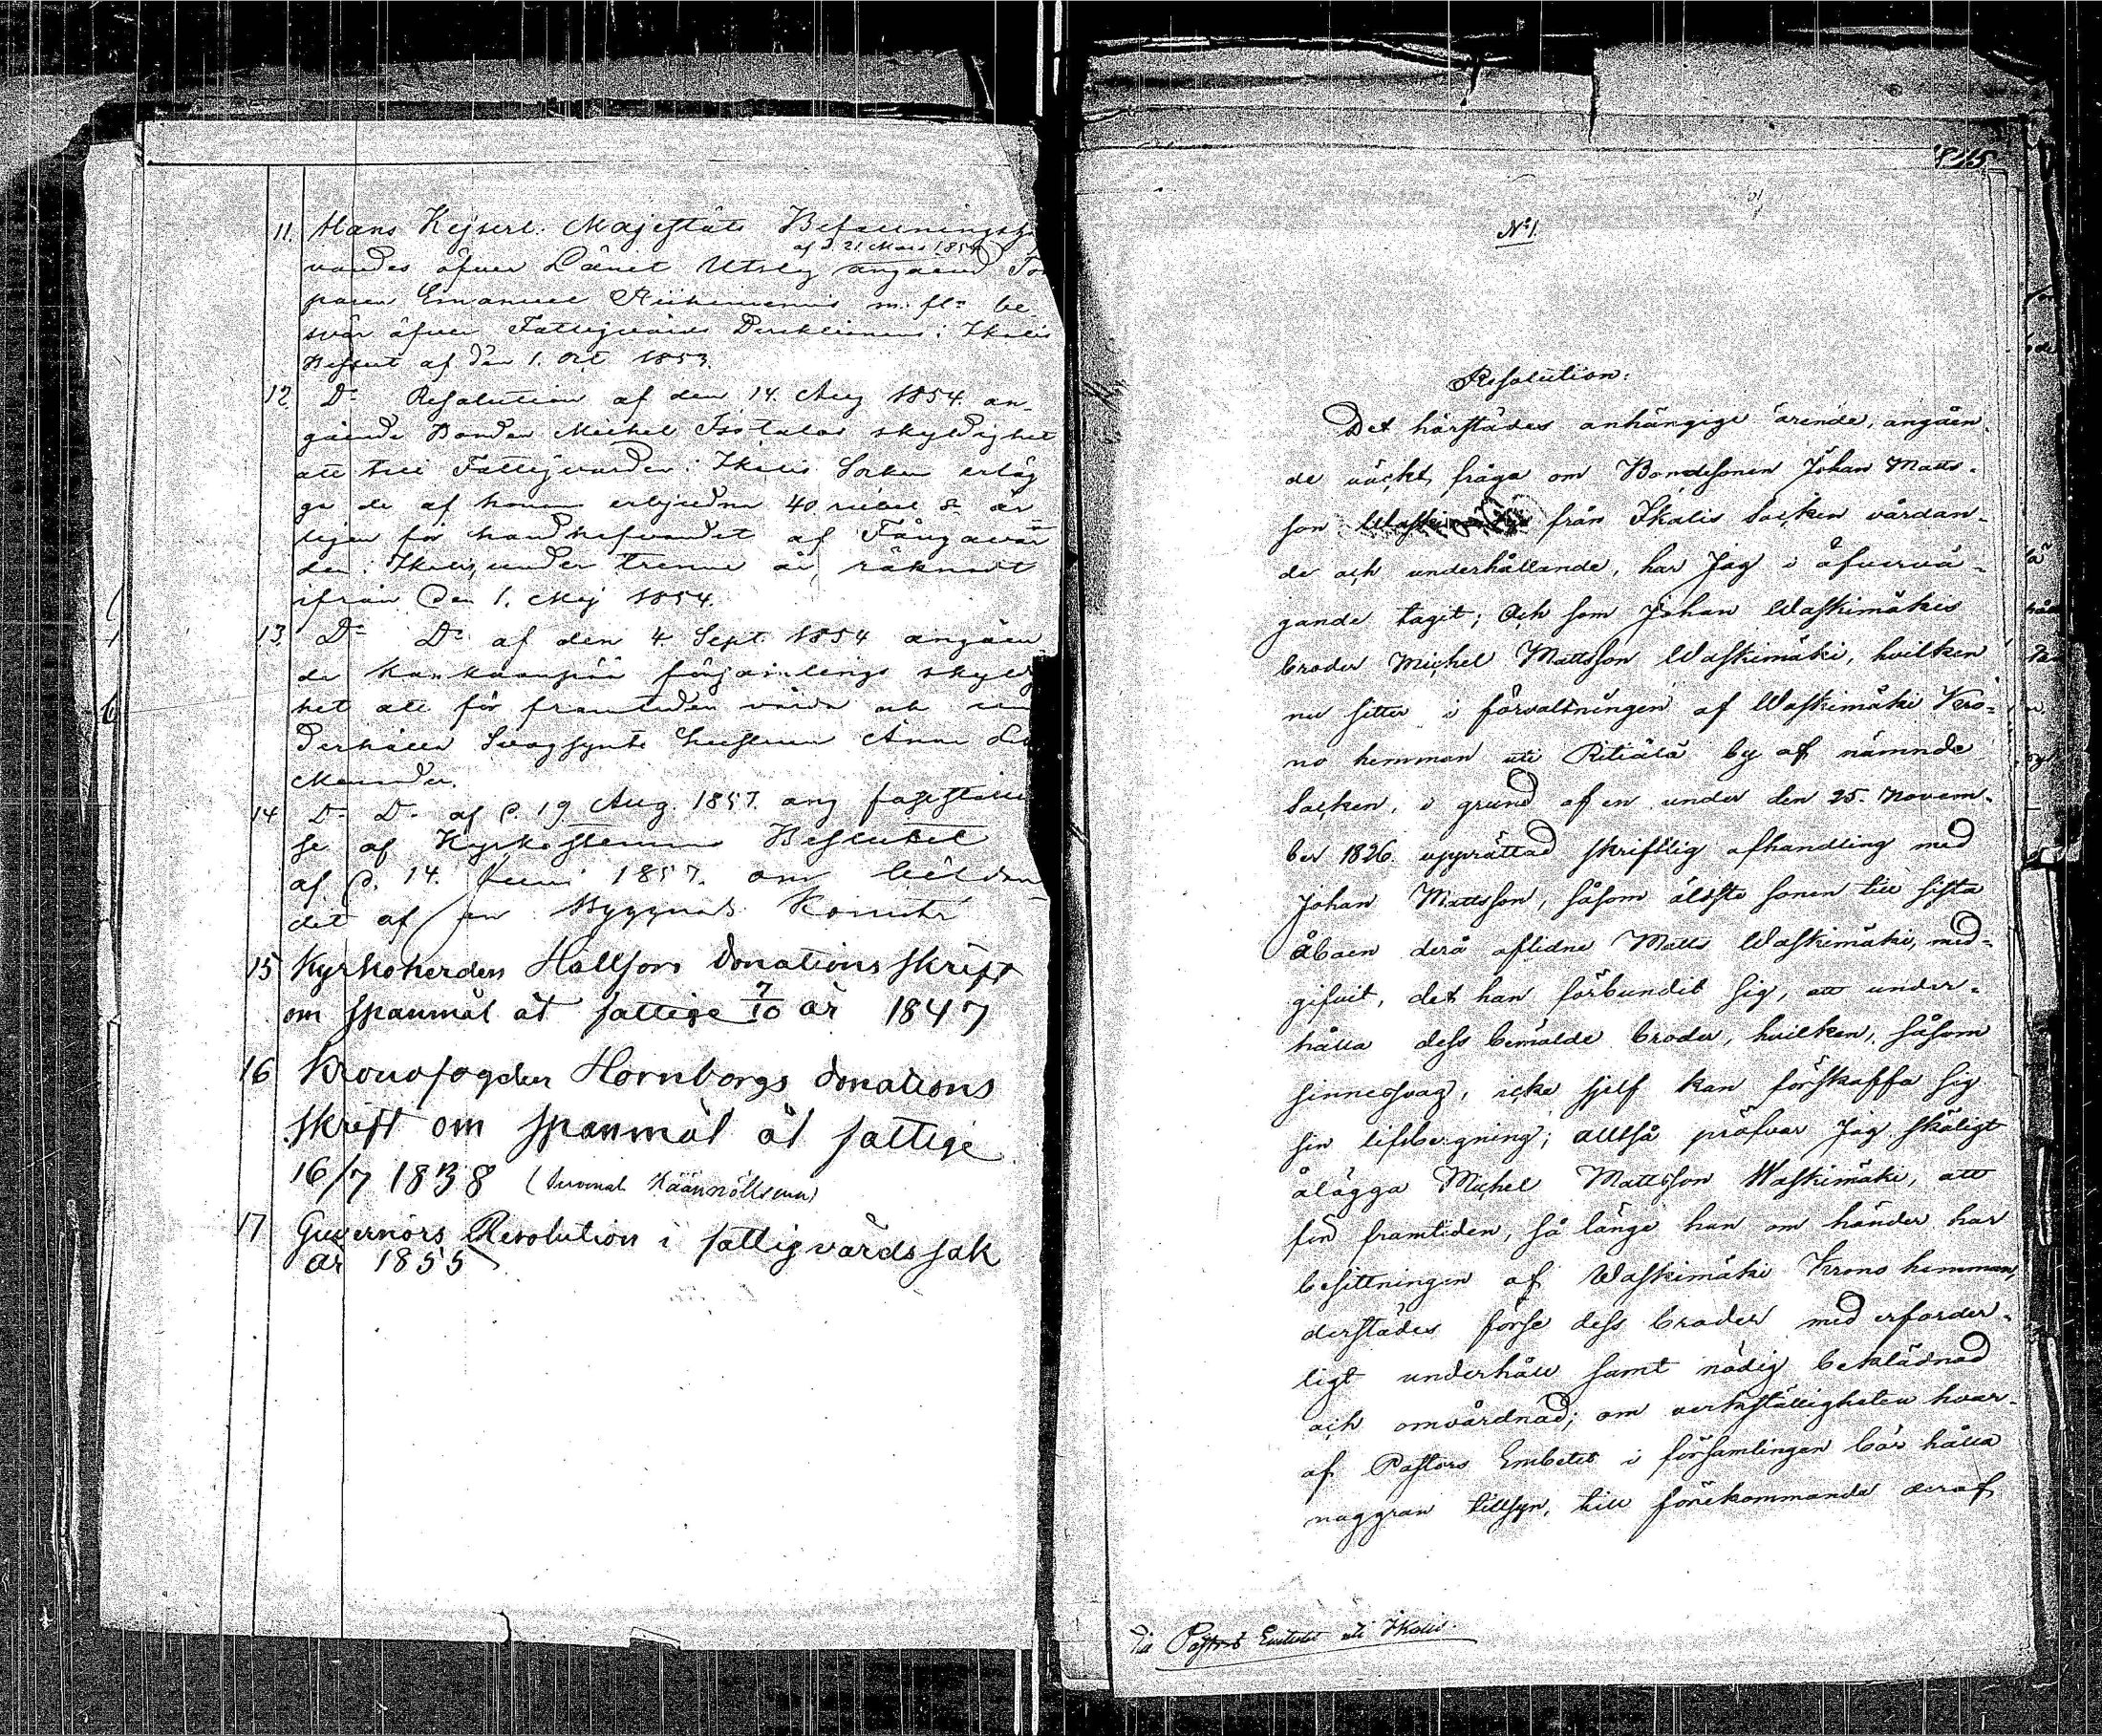 11. Hans Kejserl. Majestäts Befallningsha
af d. 21 Mars 1854
vandes öfver Länet Utslag angående Tor
paren Emanuel m. fl. be-
svär öfver Fattigvårds Direktionens i Ikalis
Beslut af den 1. Oct 1853.
12. Do Resolution af den 14. Aug 1854. an-
gående Bonden Michel skyldighet
att till Fattigvården i Ikalis Socken erläg
ga de af honom erbjudna 40 rubel Sr år
ligen för handhafvandet af Fångavår
den i Ikalis, under trenne år, räknadt
ifrån den 1. Maj 1854.
13. Do Do af den 4. Sept. 1854 angåen
de Kankaanpää församlings skyldig
het att för framtiden vårda och un
derhålla Svagsynta Hustrun Anna
14 Do Do af d. 19 Aug. 1857. ang fastställel
se af Kyrkostämmo Beslutet
af d. 14. Juni 1857. om bildan
det af en Byggnads Komité
15 Kyrkoherden Hallfors donations skrift
om spanmål åt fattige 7/10 år 1847
16 Kronofogden Hornborgs donations
skrift om spanmål åt fattige
16/7 1838 ( Käännöksenä)
17 Guvernörs Resolution i fattigvårdssak
år 1855
No 1.
Resolution.
Det härstädes anhängige ärende, angåen-
de väckt fråga om Bondesonen Johan Matts-
son från Ikalis Socken vårdan-
de och underhållande, har Jag i öfvervä-
gande tagit; Och som Johan Waskimäkis
broder Michel Mattsson Waskimäki, hvilken
nu sitter i förvaltningen af Waskimäki Kro-
no hemman uti by af nämnde
Socken, i grund af en under den 25. Novem-
ber 1826. upprättad skriftlig afhandling med
Johan Mattsson, såsom äldste sonen till sista
åboen derå aflidne Matts Waskimäki, med-
gifvit, det han förbundit sig, att under-
hålla dess bemälde broder, hvilken, såsom
sinnessvag, icke sjelf kan förskaffa sig
sin lifsbergning; alltså pröfvar Jag skäligt
ålägga Michel Mattsson Waskimäki, att
för framtiden, så länge han om händer har
besittningen af Waskimäki Krono hemman,
derstädes förse dess broder med erforder-
ligt underhåll samt nödig beklädnad
och omvårdnad; om verkställigheten hvar-
af Pastors Embetet i församlingen bör hålla
noggran tillsyn, till förekommande deraf
Till Pastors Embetet uti Ikalis.